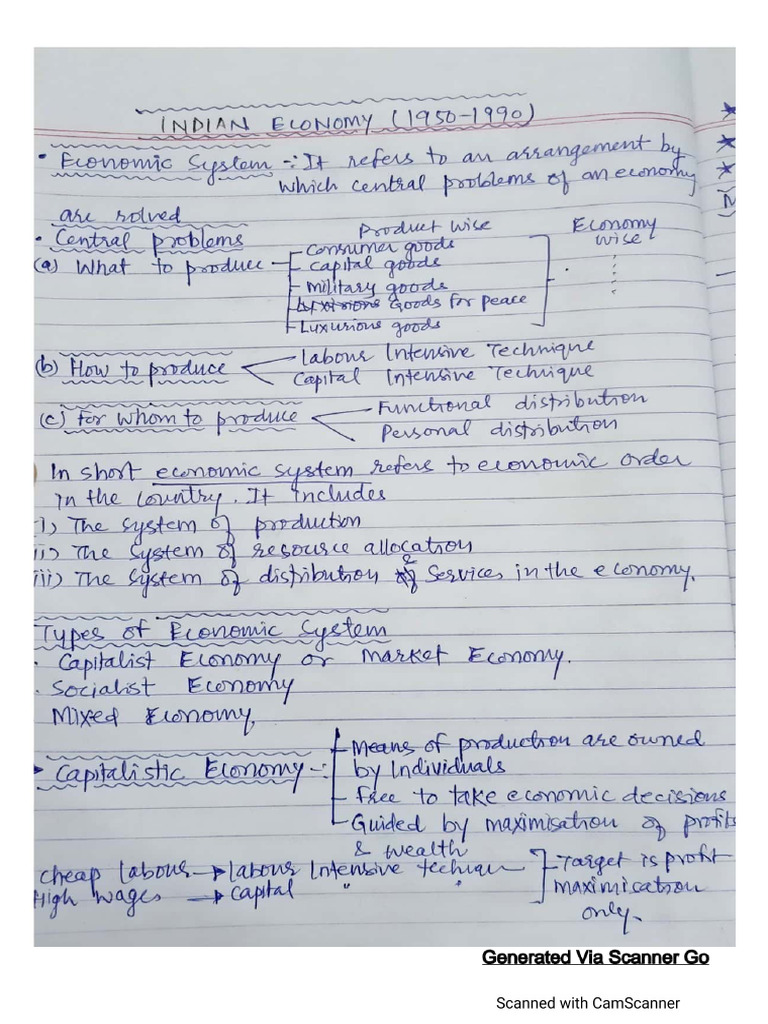 INDIAN ECONOMY (1950-1990)
• Economic System :- It refers to an arrangement by
which central problems of an economy
are solved
• Central problems
Product Wise
Economy Wise
(a) What to produce
Consumer goods
Capital goods
Military goods
Goods for peace
Luxurious goods
(b) How to produce
Labour Intensive Technique
Capital Intensive Technique
(c) For Whom to produce
Functional distribution
Personal distribution
In short economic system refers to economic order
in the country. It includes
i) The system of production
ii) The system of resource allocation
iii) The system of distribution & services in the economy.
Types of Economic System
• Capitalist Economy or Market Economy.
• Socialist Economy
Mixed Economy.
• Capitalistic Economy :-
Means of production are owned
by Individuals
Free to take economic decisions
Guided by maximisation of profits
& wealth
Cheap labour → labour Intensive techique
High wages → Capital " "
Target is profit
maximisation
only.
Generated Via Scanner Go
Scanned with CamScanner